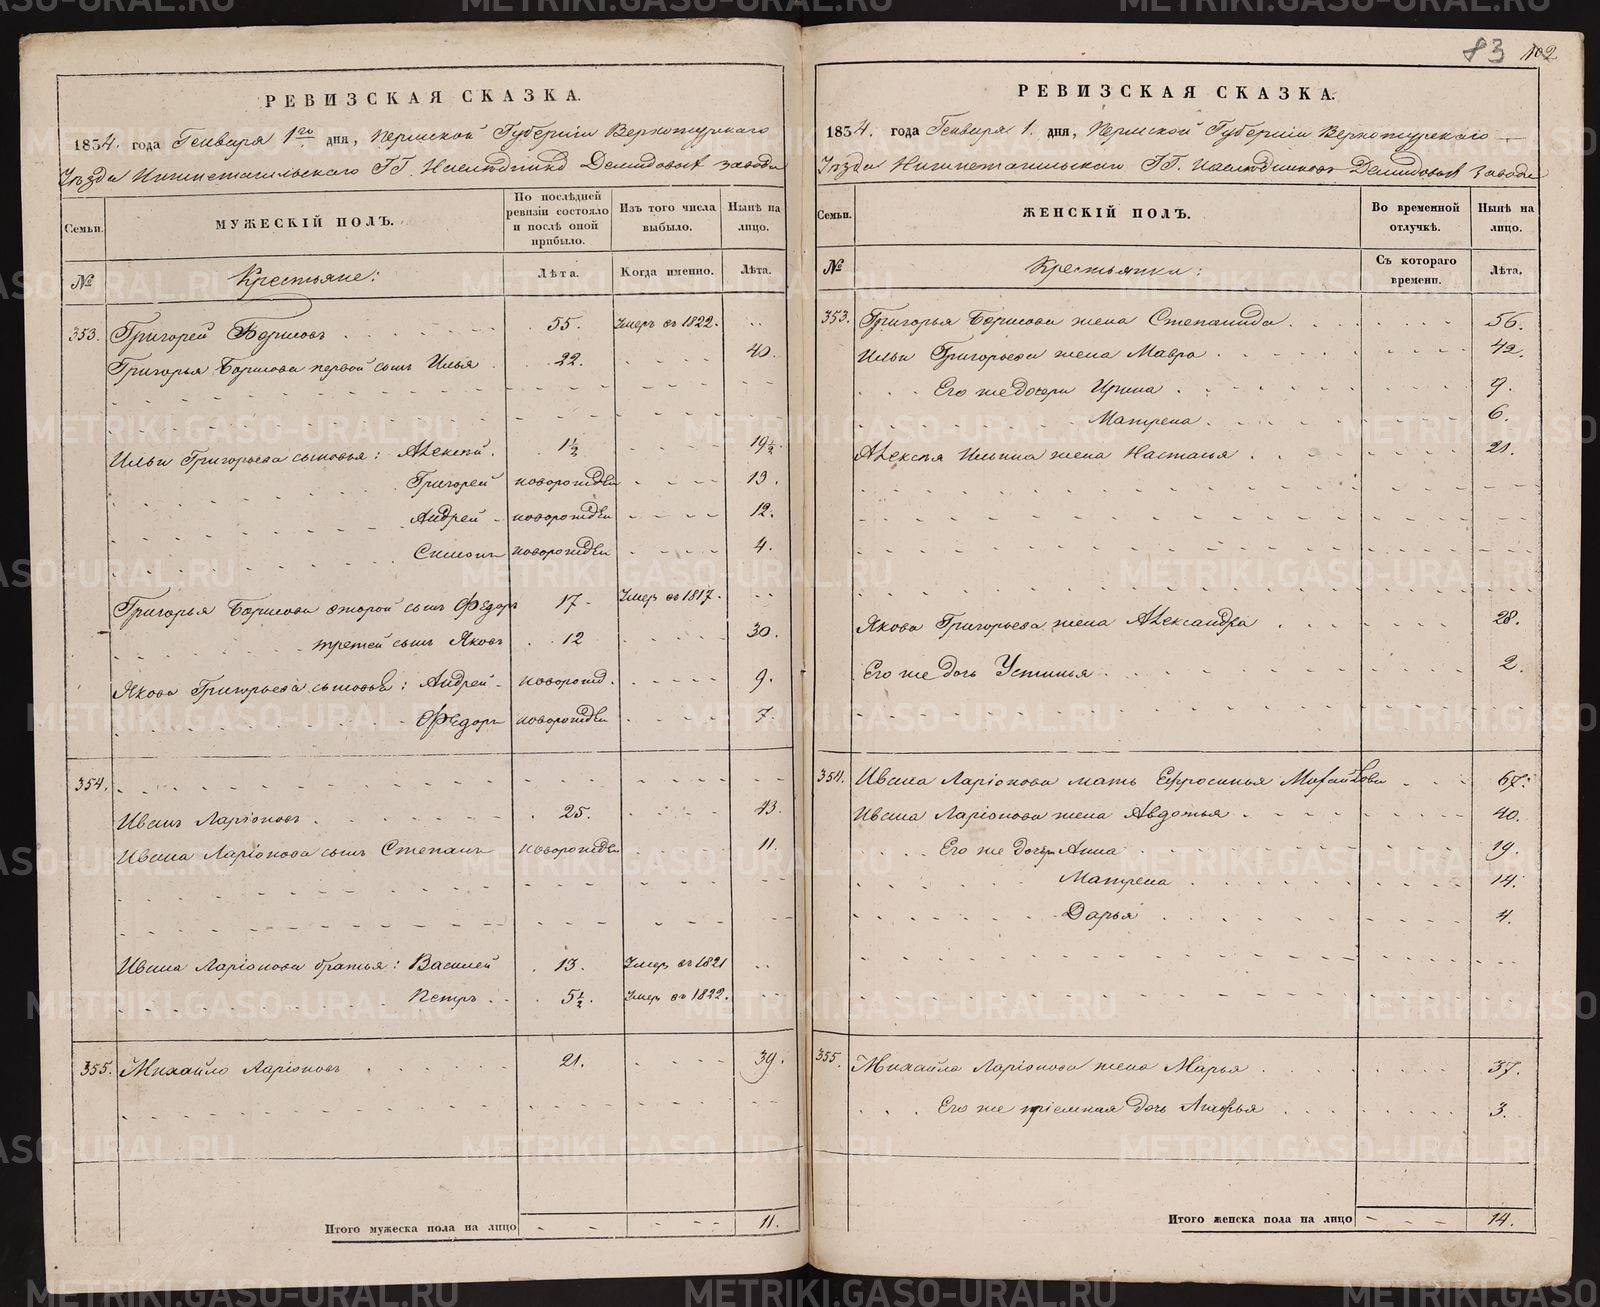 83 102
РЕВИЗСКАЯ СКАЗКА.
1834. года Генваря 1го дня, Пермской Губерніи Верхотурскаго
Уѣзда Нижнетагильскаго ГГ. Наслѣдников Демидовых завода
Семьи.
МУЖЕСКІЙ ПОЛЪ.
По послѣдней ревизіи состояло и послѣ оной прибыло.
Изъ того числа выбыло.
Нынѣ на лицо.
№
Крестьяне:
Лѣта.
Когда именно.
Лѣта.
353. Григорей Борисовъ 55. Умеръ въ 1822.
Григорья Борисова первой сынъ Илья 22. 40.
Ильи Григорьева сыновья: Алексѣй. 1½ 19½.
Григорей новорожден 13.
Андрей новорожден 12.
Симонъ новорожден 4.
Григорья Борисова второй сынъ Федоръ 17. Умеръ въ 1817.
третей сынъ Яковъ 12 30.
Якова Григорьева сыновья: Андрей новорожд. 9.
Федоръ новорожден 7.
354.
Иванъ Ларіоновъ 25. 43.
Ивана Ларіонова сынъ Степанъ новорожден 11.
Ивана Ларіонова братья: Василей 13. Умеръ въ 1821
Петръ 5½. Умеръ въ 1822.
355. Михайло Ларіоновъ 21. 39.
Итого мужеска пола на лицо 11.
РЕВИЗСКАЯ СКАЗКА.
1834. года Генваря 1. дня, Пермской Губерніи Верхотурскаго
Уѣзда Нижнетагильскаго ГГ. Наслѣдниковъ Демидовых завода
Семьи.
ЖЕНСКІЙ ПОЛЪ.
Во временной отлучкѣ.
Нынѣ на лицо.
№
Крестьянки:
Съ котораго времени.
Лѣта.
353. Григорья Борисова жена Степанида 56.
Ильи Григорьева жена Мавра 42.
Его же дочери Ирина 9.
Матрена 6.
Алексѣя Ильина жена Настасья 21.
Якова Григорьева жена Александра 28.
Его же дочь Устинья 2.
354. Ивана Ларіонова мать Ефросинья Михайлова 67.
Ивана Ларіонова жена Авдотья 40.
Его же дочери Анна 19.
Матрена 14.
Дарья 4.
355. Михайла Ларіонова жена Марья 37.
Его же пріемная дочь 3.
Итого женска пола на лицо 14.
METRIKI.GASO-URAL.RU